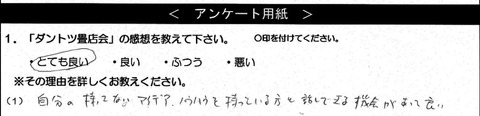 < アンケート用紙 >
1．「ダントツ畳店会」の感想を教えて下さい。　○印を付けてください。
・とても良い　・良い　・ふつう　・悪い
※その理由を詳しくお教えください。
(1) 自分の持ってないアイデア、ノウハウを持っている方と話しできる機会があって良い